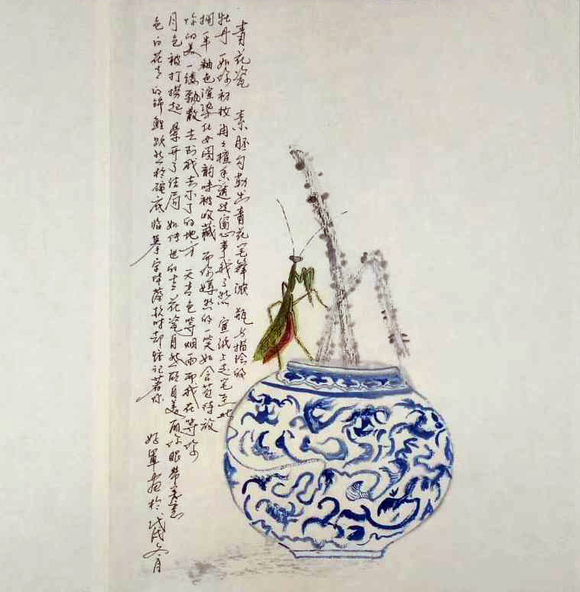 青花瓷 素胚勾勒出青花笔锋浓 瓶身描绘的
牡丹一如你初妆 冉冉檀香透过窗心事我了然 宣纸上走笔至此
搁一半 釉色渲染仕女图韵味被收藏 而你嫣然的一笑如含苞待放
你的美一缕飘散 去到我去不了的地方 天青色等烟雨而我在等你
月色被打捞起 晕开了结局 如传世的青花瓷自顾自美丽你眼带笑意
色白花青的锦鲤跃然于碗底 临摹宋体落款时却惦记着你
军画于戊戌冬月